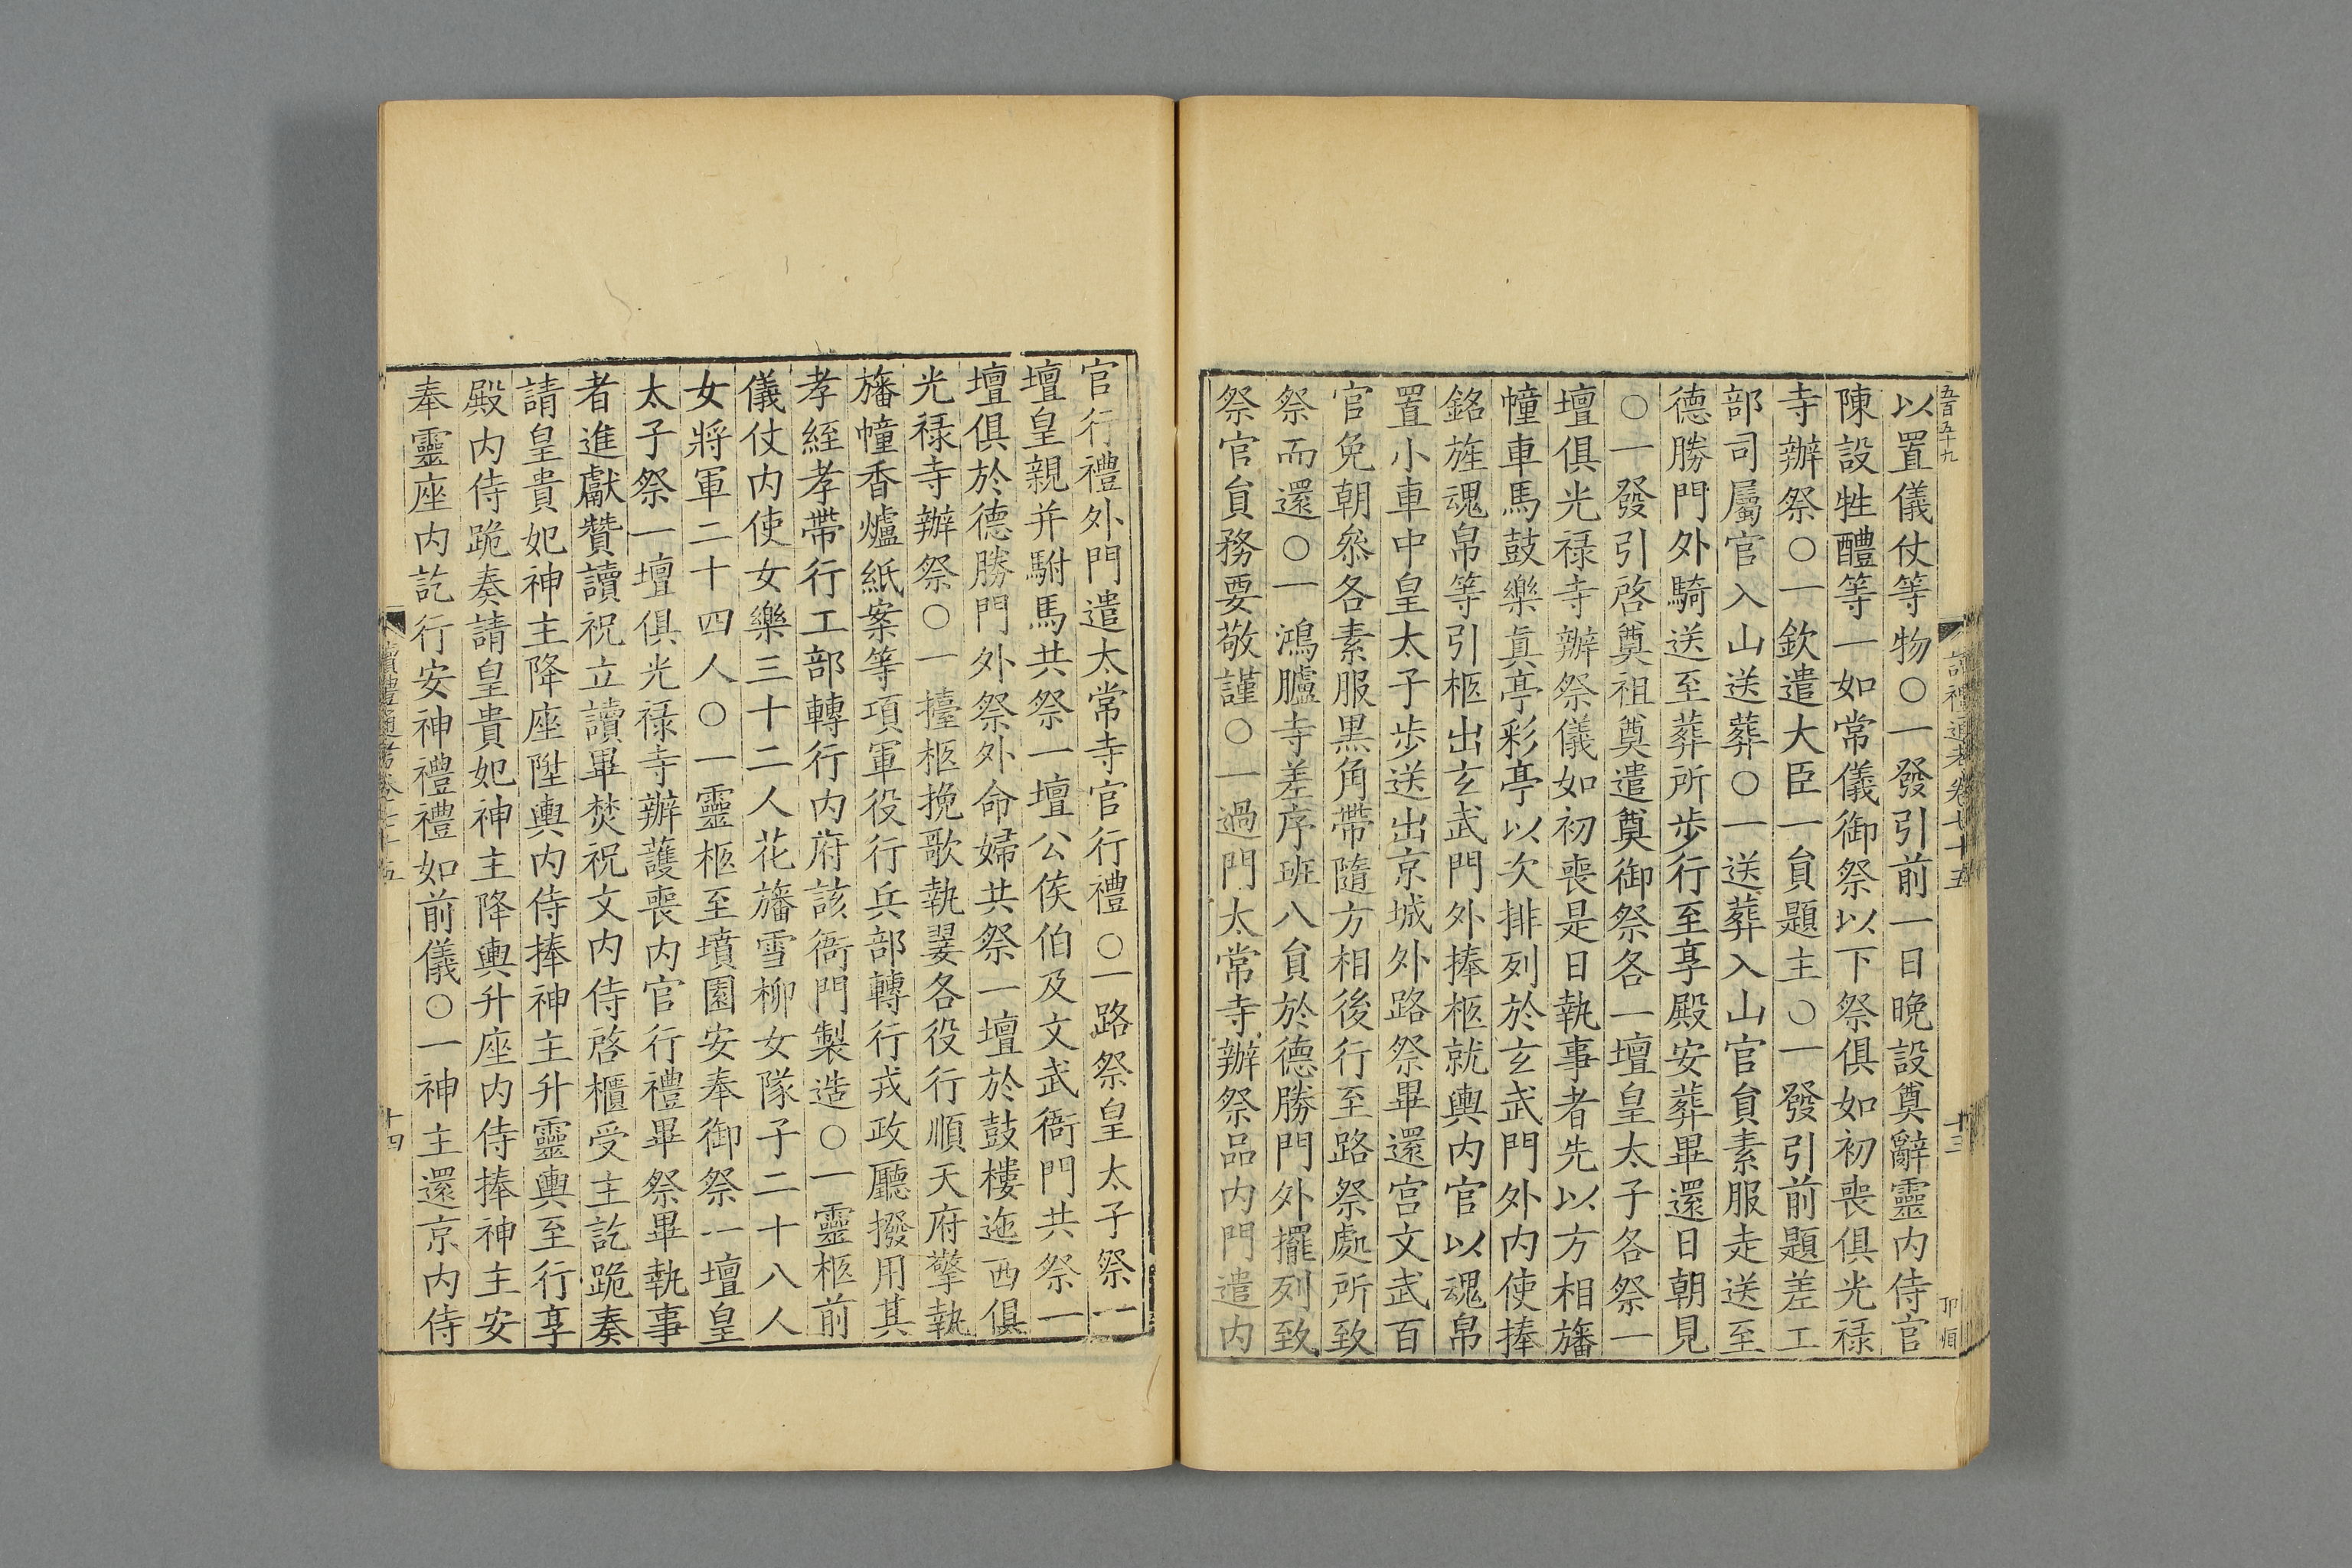 五百五十九
讀禮通考卷七十五
十三
以置儀仗等物○一發引前一日晚設奠辭靈内侍官
陳設牲醴等一如常儀御祭以下祭俱如初喪俱光禄
寺辦祭○一欽遣大臣一貟題主○一發引前題差工
部司屬官入山送葬○一送葬入山官貟素服走送至
德勝門外騎送至葬所步行至享殿安葬畢還日朝見
○一發引啓奠祖奠遣奠御祭各一壇皇太子各祭一
壇俱光禄寺辦祭儀如初喪是日執事者先以方相旛
幢車馬鼓樂眞亭彩亭以次排列於玄武門外内使捧
銘旌魂帛等引柩出玄武門外捧柩就輿内官以魂帛
置小車中皇太子步送出京城外路祭畢還宫文武百
官免朝叅各素服黑角帶隨方相後行至路祭處所致
祭而還○一鴻臚寺差序班八貟於德勝門外擺列致
祭官貟務要敬謹○一過門太常寺辦祭品内門遣内
官行禮外門遣太常寺官行禮○一路祭皇太子祭一
壇皇親并駙馬共祭一壇公侯伯及文武衙門共祭一
壇俱於德勝門外祭外命婦共祭一壇於鼓樓迤西俱
光禄寺辦祭○一擡柩挽歌執翣各役行順天府擎執
旛幢香爐紙案等項軍役行兵部轉行戎政廳撥用其
孝絰孝帶行工部轉行内府該衙門製造○一靈柩前
儀仗内使女樂三十二人花旛雪柳女隊子二十八人
女將軍二十四人○一靈柩至墳園安奉御祭一壇皇
太子祭一壇俱光禄寺辦護喪内官行禮畢祭畢執事
者進獻贊讀祝立讀畢焚祝文内侍啓櫃受主訖跪奏
請皇貴妃神主降座陞輿内侍捧神主升靈輿至行享
殿内侍跪奏請皇貴妃神主降輿升座内侍捧神主安
奉靈座内訖行安神禮禮如前儀○一神主還京内侍
讀禮通考卷七十五
十四